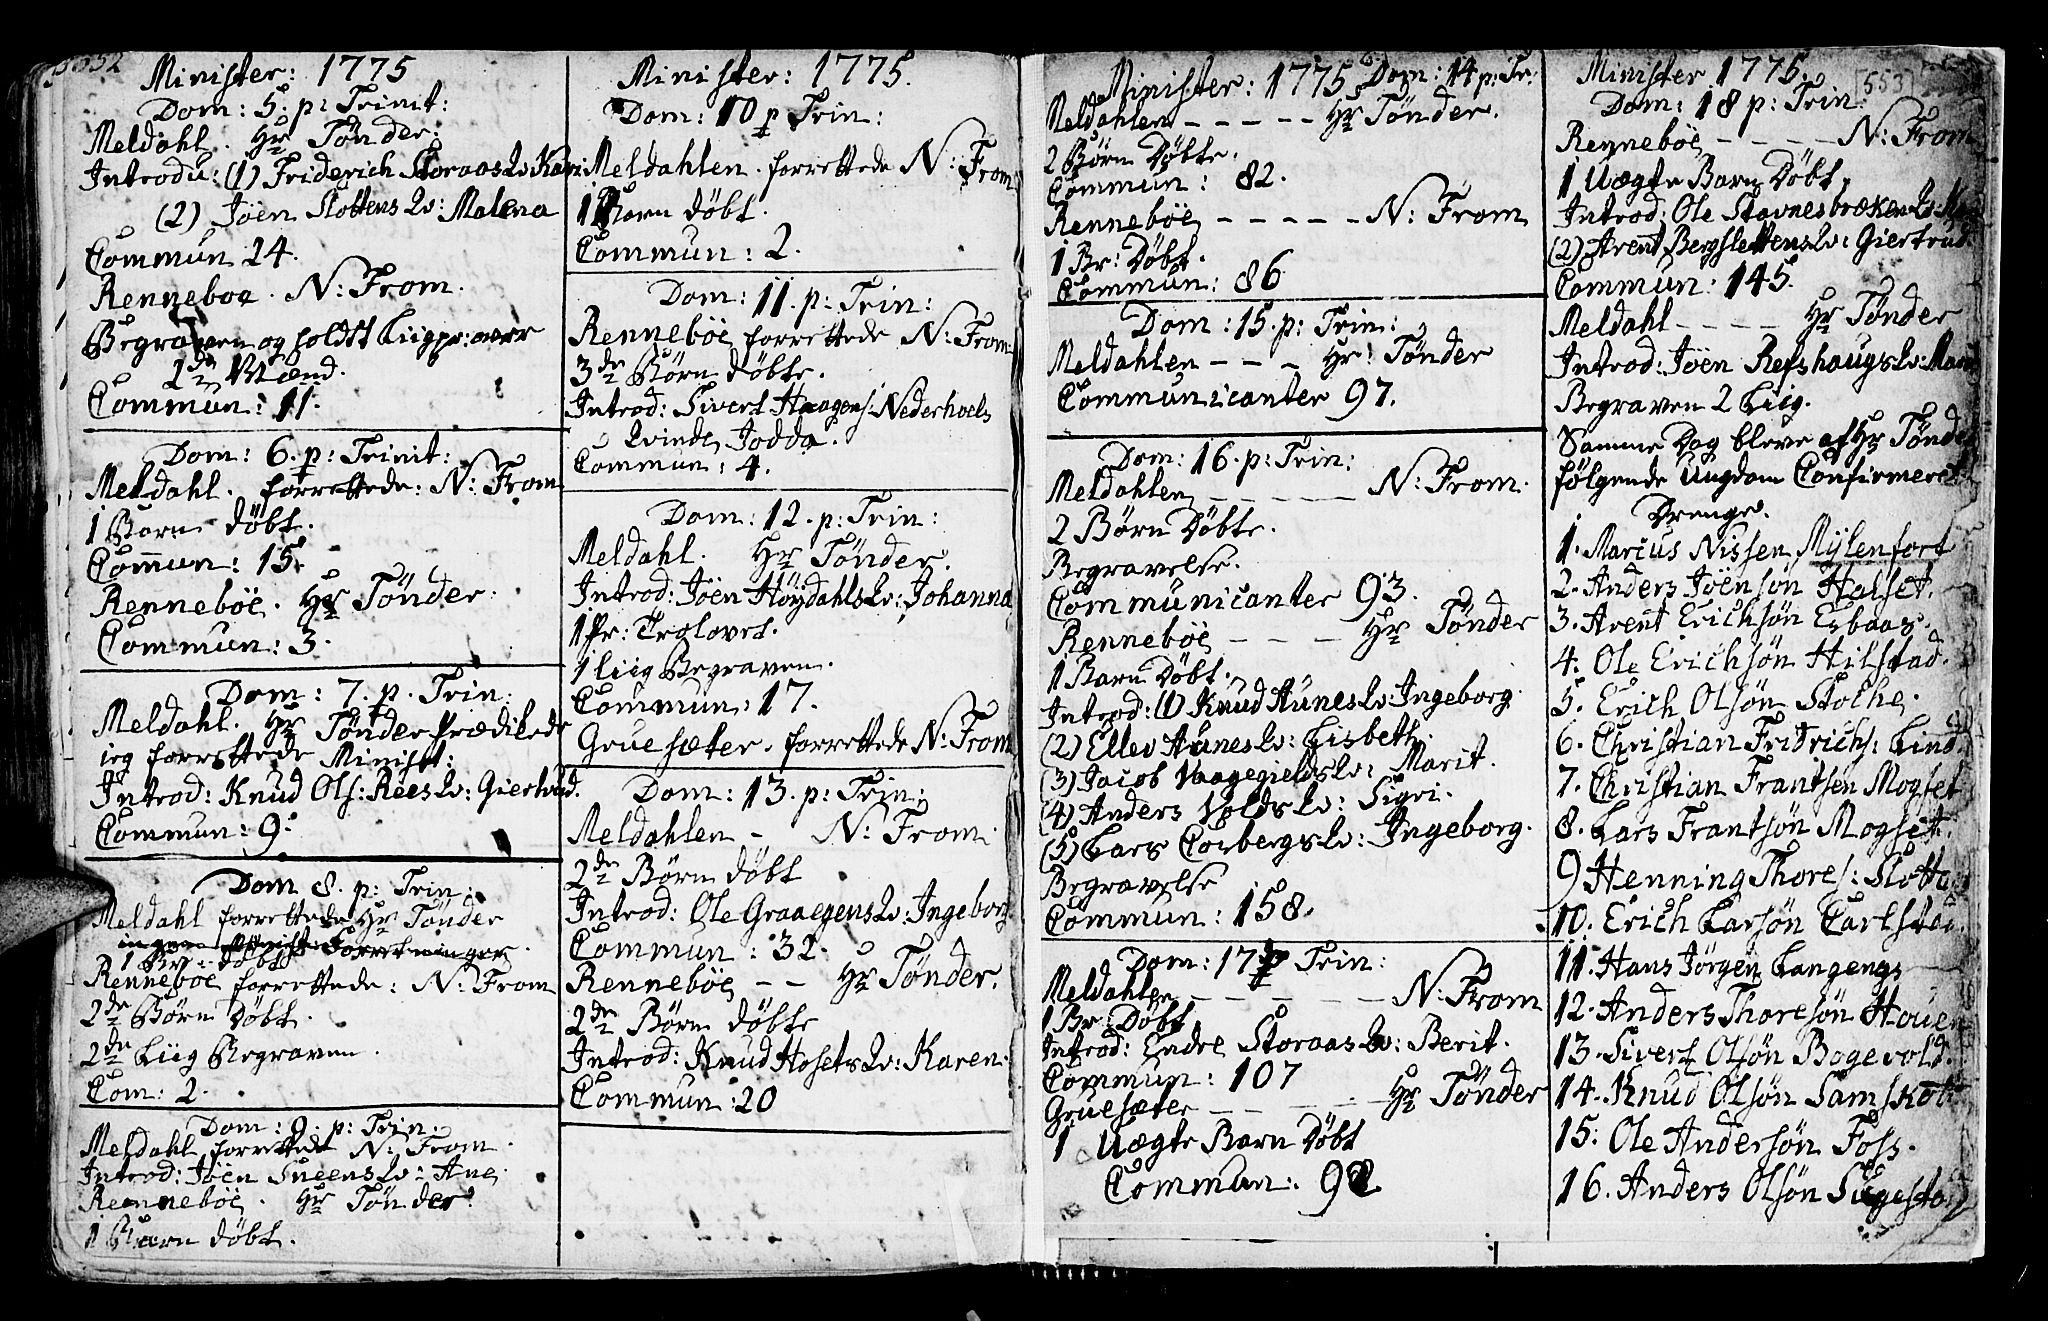 552
Minister: 1775
Dom: 5. p: Trinit:
Meldahl. Hr Tønder:
Introdu: (1) Friderich Storaas Qv: Kari
(2) Jöen Slottens Qv: Malena
Commun 24.
Renneboe. N: From.
Begraven og holdt Liigpr: over
2de Mænd.
Commun: 11.
Dom: 6. p: Trinit:
Meldahl. forrettede: N: From
1 Barn döbt.
Com̄un: 15.
Renneböe. Hr Tønder.
Commun: 3.
Dom: 7. p. Trin:
Meldahl. Hr Tønder Prædikede
ieg forrettede Minist:
Introd: Knud Ols: Rees Qv: Giertrud.
Commun: 9.
Dom 8. p: Trin:
Meldahl forrettede Hr Tønder
ingen Minist: Forretninger.
1 Br: döbt
Renneböe forrettede: N: From
2de Börn Döbt.
2de Liig Begraven.
Com: 2.
Dom: 9. p: Trin.
Meldahl forrettede N: From.
Introd: Jöen Sneens Qv: Ane.
Renneböe. Hr Tønder.
1 Barn döbt.
Minister: 1775.
Dom: 10 p Trin:
Meldahlen. forrettede N: From
1 Barn döbt.
Commun: 2.
Dom: 11. p: Trin:
Renneböe forrettede N: From.
3de Börn döbte.
Introd: Sivert Haagens: Nederhoels
Qvinde Jodda.
Commun: 4.
Dom: 12. p: Trin:
Meldahl. Hr Tønder.
Introd: Jöen Höydahls Qv: Johanna
1 Pr: Trolovet.
1 liig Begraven.
Commun: 17.
Gruesæter. forrettede N: From
Dom: 13. p: Trin:
Meldahlen - N: From.
2de Börn döbt
Introd: Ole Graaegens Qv: Ingeborg
Commun: 32.
Renneböe - - Hr Tønder.
2de Börn döbte
Introd: Knud Hosets Qv: Karen.
Commun: 20
Minister: 1775. Dom: 14 p: Tr:
Meldahlen - - - - - Hr Tønder.
2 Börn Döbte.
Commun: 82.
Renneböe - - - - - N: From
1 Br: Döbt.
Commun: 86
Dom: 15. p: Trin:
Meldahlen - - - Hr: Tønder
Communicanter 97.
Dom: 16. p: Trin:
Meldahlen - - - - - N: From.
2 Börn Döbte.
Begravelse.
Communicanter 93.
Renneböe - - - - Hr Tønder
1 Barn Döbt.
Introd: (1) Knud Hünes Qv: Ingeborg.
(2) Ellev Hünes Qv: Lisbeth.
(3) Jacob Vaagegields Qv: Marit.
(4) Anders Volds Qv: Sigri.
(5) Lars Corbergs Qv: Ingeborg.
Begravelse
Commun: 158.
Dom: 17 p Trin:
Meldahlen - - - - - - N: From
1 Br. Döbt
Introd: Endre Storaas Qv: Berit.
Commun: 107
Gruesæter - - - - - Hr Tønder
1 Uægte Barn Döbt
Commun: 92
Minister 1775. [553]
Dom: 18 p: Trin:
Renneböe - - - - N: From
1 Uægte Barn Döbt.
Introd: Ole Stavnesbræken Qv:
(2) Arent Bergslettens Qv: Giertrud.
Commun: 145.
Meldahl - - - - Hr Tønder
Introd: Jöen Refshaugs Qv: Marit
Begraven 2 Liig.
Samme Dag bleve af Hr Tønder
fölgende Ungdom Confirmeret
Drenge.
1. Marcus Nissen Mÿlenfort
2. Anders Jöensön Halset.
3. Arent Erichsön Esbaas.
4. Ole Erichsön Hilstad.
5. Erich Olsön Stolhe.
6. Christian Fridrichs: Lind.
7. Christian Frantsen Mogset
8. Lars Frantsön Mogset.
9 Henning Thores: Slotta
10. Erich Larsön Carlstad.
11. Hans Jörgen Langengs
12. Anders Thoresön Houen
13. Sivert Olsön Bagevold.
14. Knud Olsön Samskot
15. Ole Andersön Foss.
16. Anders Olsön